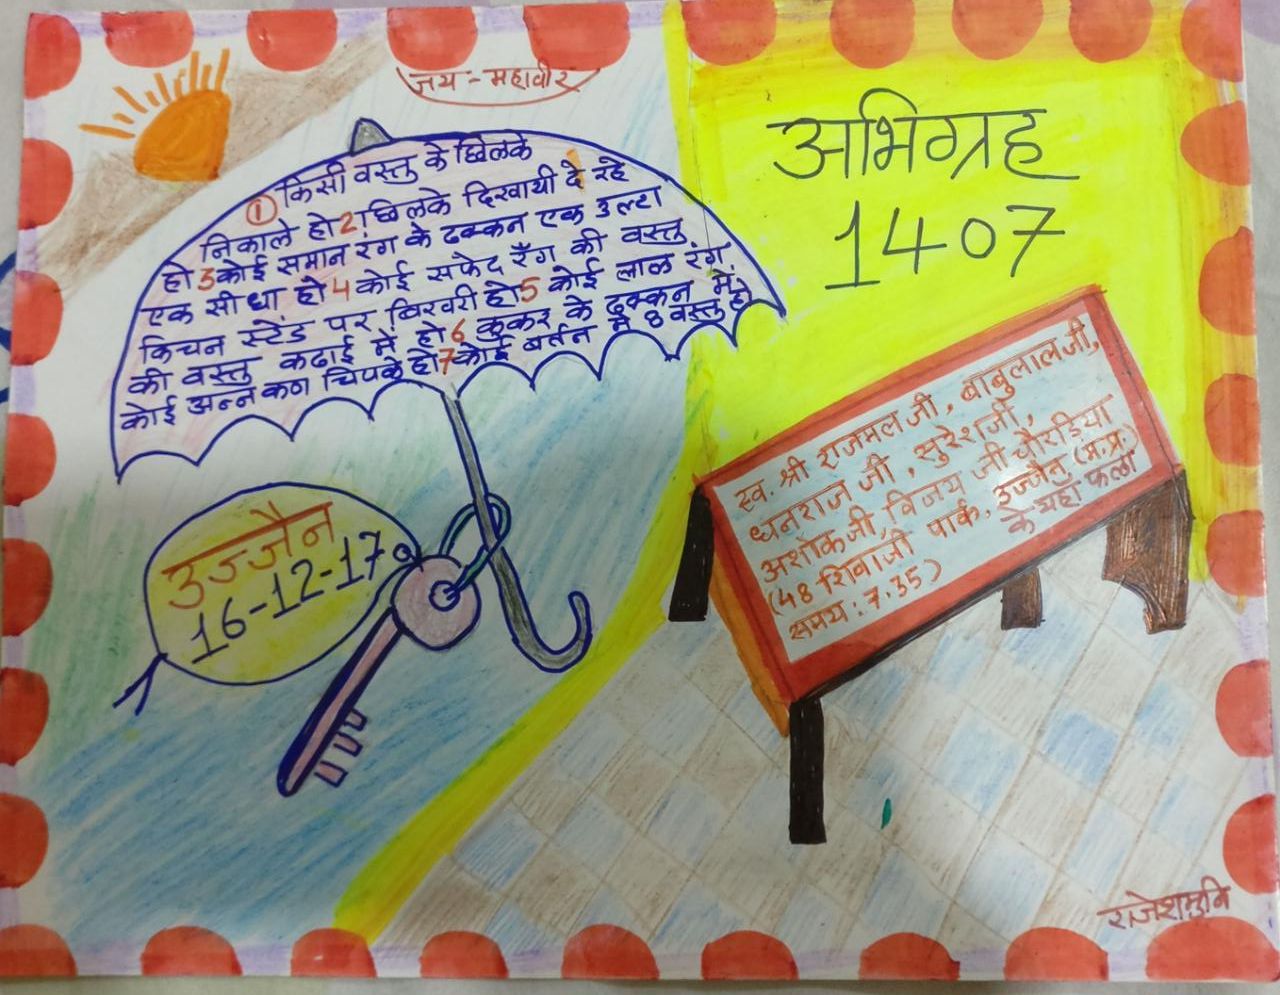 जय-महावीर
① किसी वस्तु के छिलके
निकाले हो 2 छिलके दिखायी दे रहे
हो 3 कोई समान रंग के ढक्कन एक उल्टा
एक सीधा हो 4 कोई सफेद रँग की वस्तु
किचन स्टेंड पर बिखरी हो 5 कोई लाल रंग
की वस्तु कढाई में हो 6 कुकर के ढक्कन में
कोई अन्न कण चिपके हो 7 कोई बर्तन में 8 वस्तु हो
उज्जैन
16-12-17
अभिग्रह
1407
स्व. श्री राजमल जी, बाबुलाल जी,
धनराज जी, सुरेश जी,
अशोक जी, विजय जी चौरडिया
(48 शिवाजी पार्क, उज्जैन (म.प्र.)
के यहाँ फला
समय: 7.35)
राजेशमुनि